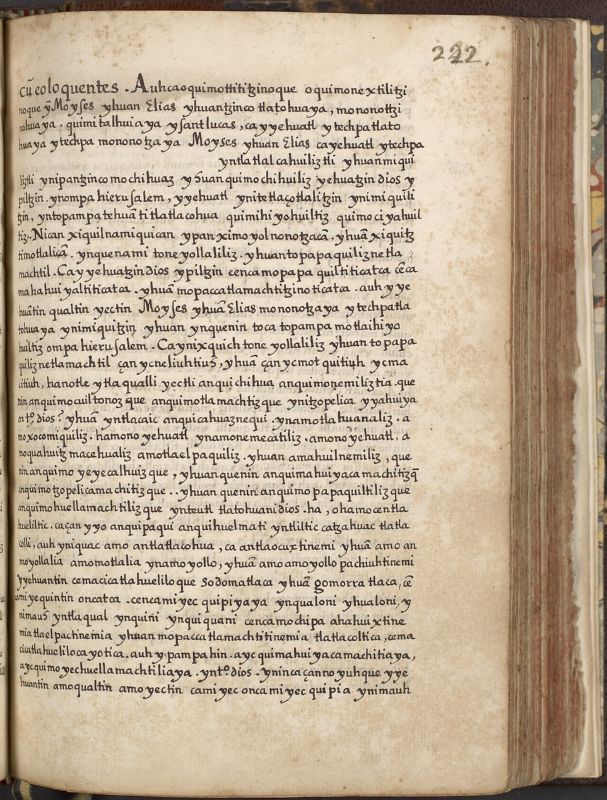 222.
cū eo loquentes. Auh ca oquimottititzinoque oquimonextilitzi
noque ỹ Moyses yhuan Elias yhuantzinco tlatohuaya, mononottzi
nohuaya. quimitalhuiaya y sant lucas, ca yyehuatl ytechpa tlato
huaya ytechpa mononotzaya Moyses yhuan Elias ca yehuatl ytechpa
yntlatlalcahuiliztli yhuan miqui
liztli ynipantzinco mochihuaz yhuan quimochihuiliz yehuatzin dios y
piltzin. ynompa hierusalem, yyehuatl ynitetlaçotlalitzin ynimiquili
tzin, yn topampa tehuāti titlatlacohua quimihiyohuiltiz quimociyahuil
tiz. Nican xiquilnamiquican ypan ximoyolnonotzacā. yhuā xiquitz
timotlalicā. ynquenami toneyollaliliz. yhuan topapaquiliznetla
machtil. Ca yyehuatzin dios ypiltzin cenca mopapaquiltiticatca cēca
mahahuiyaltiticatca. yhuā mopaccatlamachtitzinoticatca. auh yye
huātin qualtin yectin Moyses yhuā Elias mononotzaya ytechpatla
tohuaya ynimiquitzin yhuan ynquenin toca topampa motlaihiyo
huiltiz ompa hierusalem. Ca ynixquich toneyollaliliz yhuan topapa
quiliznetlamachtil çan ycneliuhtius, yhuā çan ycmotquitiuh ycma
citiuh, hanotle ytla qualli yectli anquichihua anquimonemiliztia. que
nin anquimocuiltonoz que anquimotlamachtiz que ynitzopelica yyahuiya
in tº. dios? yhuā yntlacaic anquicahuaznequi. ynamotlahuanaliz. a
moxocomiquiliz. hamono yehuatl ynamonemecatiliz. amono yehuatl. a
noquahuitz macehualiz amotlaelpaquiliz. yhuan amahuilnemiliz, que
nin anquimoyeyecalhuiz que, yhuan quenin anquimahuiyacamachitiz q̄
anquimotzopelicamachitiz que.. yhuan quenin anquimopapaquiltiliz que
anquimohuellamachtiliz que ynteutl tlatohuani dios. ha, ohamocentla
hueliltic. ca çan yyo anquipaqui anquihuelmati yntliltic catzahuac tlatla
colli, auh yniquac amo antlatlacohua, ca antlaocuxtinemi yhuā amo an
moyollalia amomotlalia ynamoyollo, yhuā amo amoyollo pachiuhtinemi
yyehuantin cemacicatlahueliloque Sodoma tlaca yhuā gomorra tlaca, cē
cami yequintin oncatca. cenca miyec quipiyaya ynqualoni yhualoni, y
nimauh yntlaqual ynquini ynquiquani cenca mochipa ahahuixtine
mia tlaelpactinemia yhuan mopaccatlamachtitinemia tlatlacoltica, cema
cicatlahuelilocayotica. auh ypampa hin. ayc quimahuiyacamachitiaya,
ayc quimoyechuellamachtiliaya. yn tº. dios. ynin ca çanno yuhque yye
huantin amo qualtin amo yectin ca miyec onca miyec quipia ynimauh